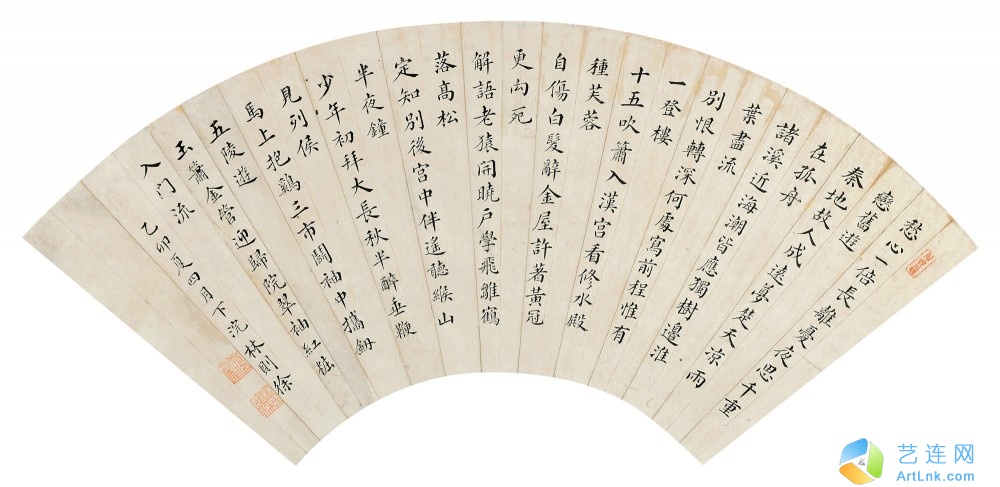 愁心一倍長離憂夜思千重
戀舊遊
秦地故人成遠夢楚天凉雨
在孤舟
諸溪近海潮皆應獨樹邊淮
葉盡流
別恨轉深何處寫前程惟有
一登樓
十五吹簫入漢宮看修水殿
種芙蓉
自傷白髮辭金屋許著黃冠
更死
解語老猿開曉戶學飛雛鶴
落高松
定知別後宮中伴遙聽緱山
半夜鐘
少年初拜大長秋半醉垂鞭
見列侯
馬上抱鷄三市鬪袖中攜釼
五陵遊
玉簫金管迎歸院翠袖紅粧
入門流
乙卯夏四月下浣林則徐
艺连网
ArtLnk.com